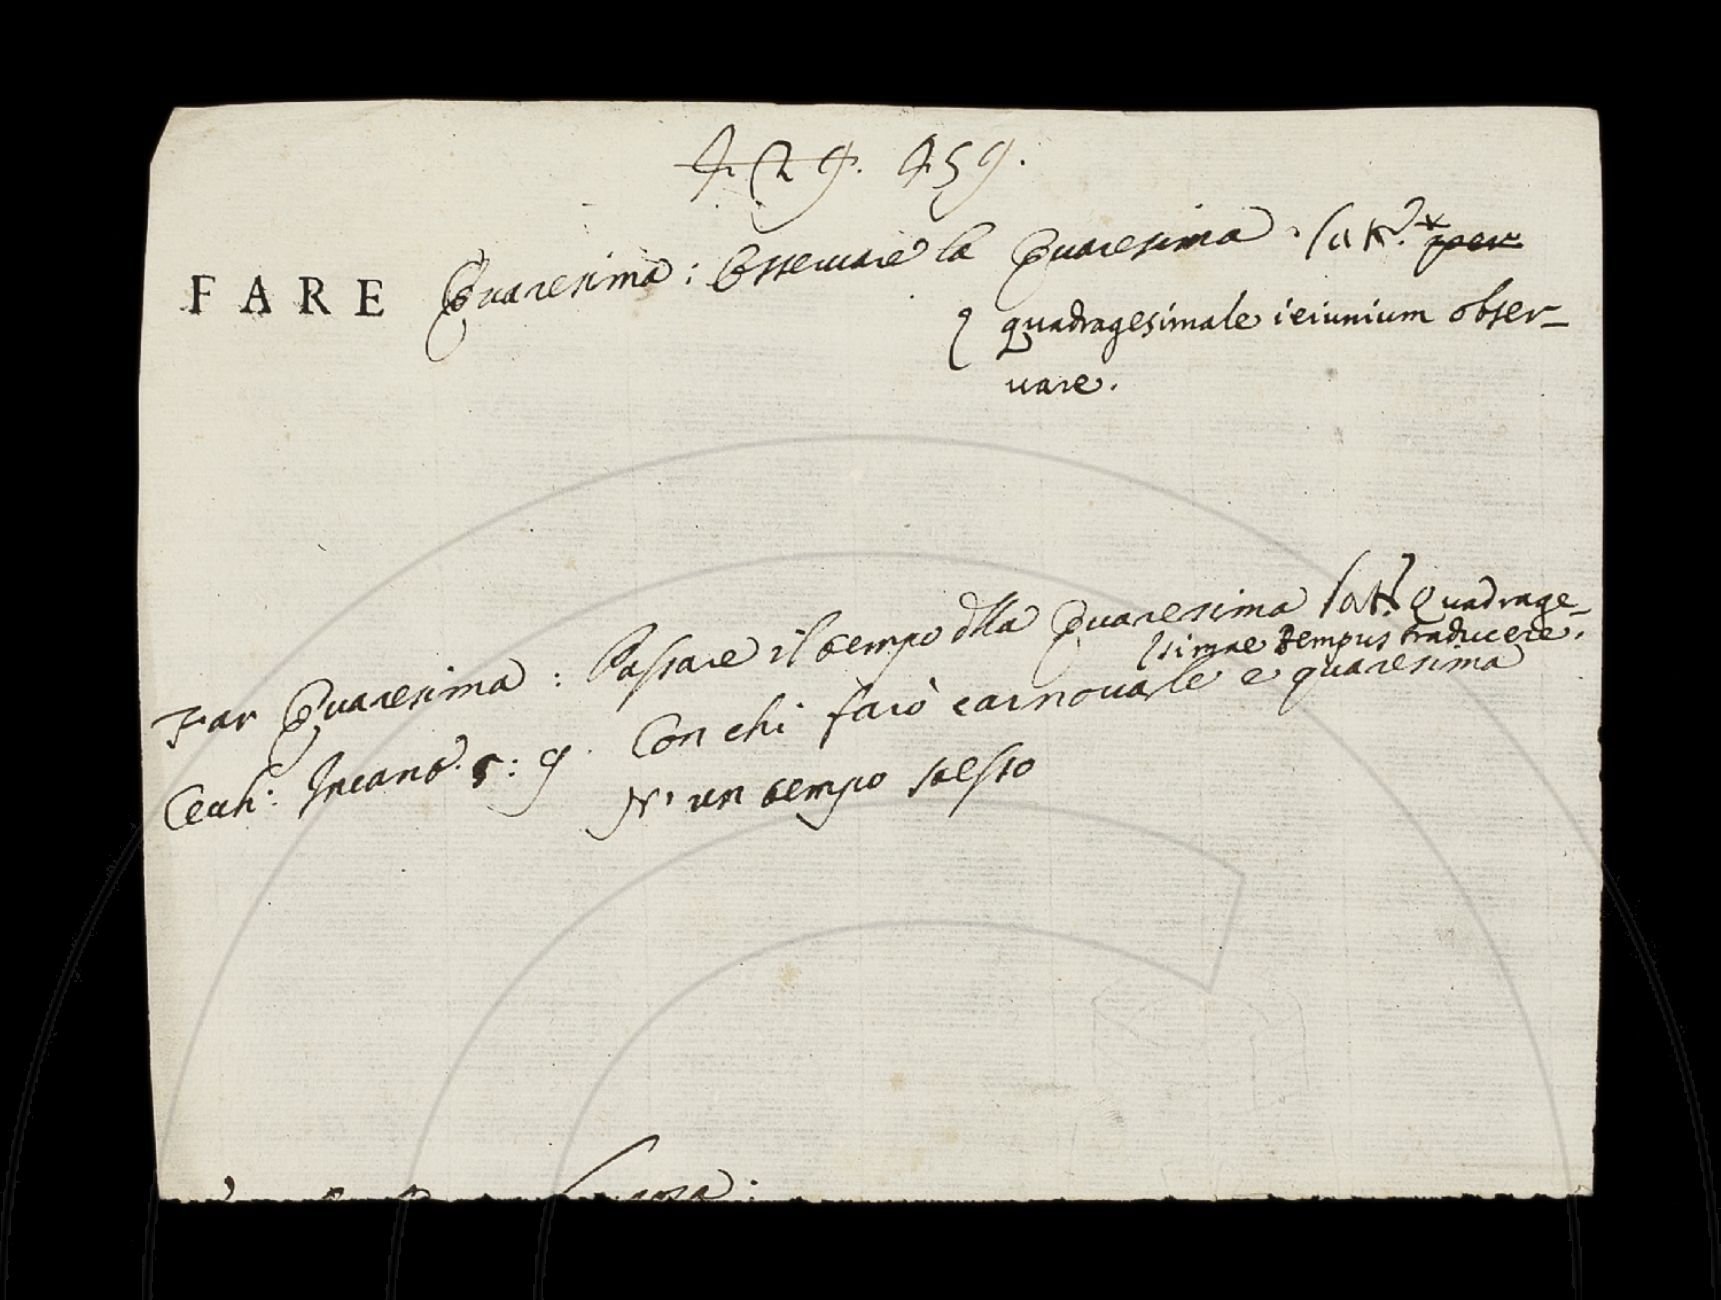 4. 29. 459.
FARE Quaresima: Osservare la Quaresima. lat. × per
quadragesimale ieiunium obser-
vare.
Far Quaresima: Passare il tempo dlla Quaresima lat. Quadrage-
simae tempus traducere.
Cecch: Incant. 5: 9. Con chi farò carnovale e quaresima
N' un tempo stesso